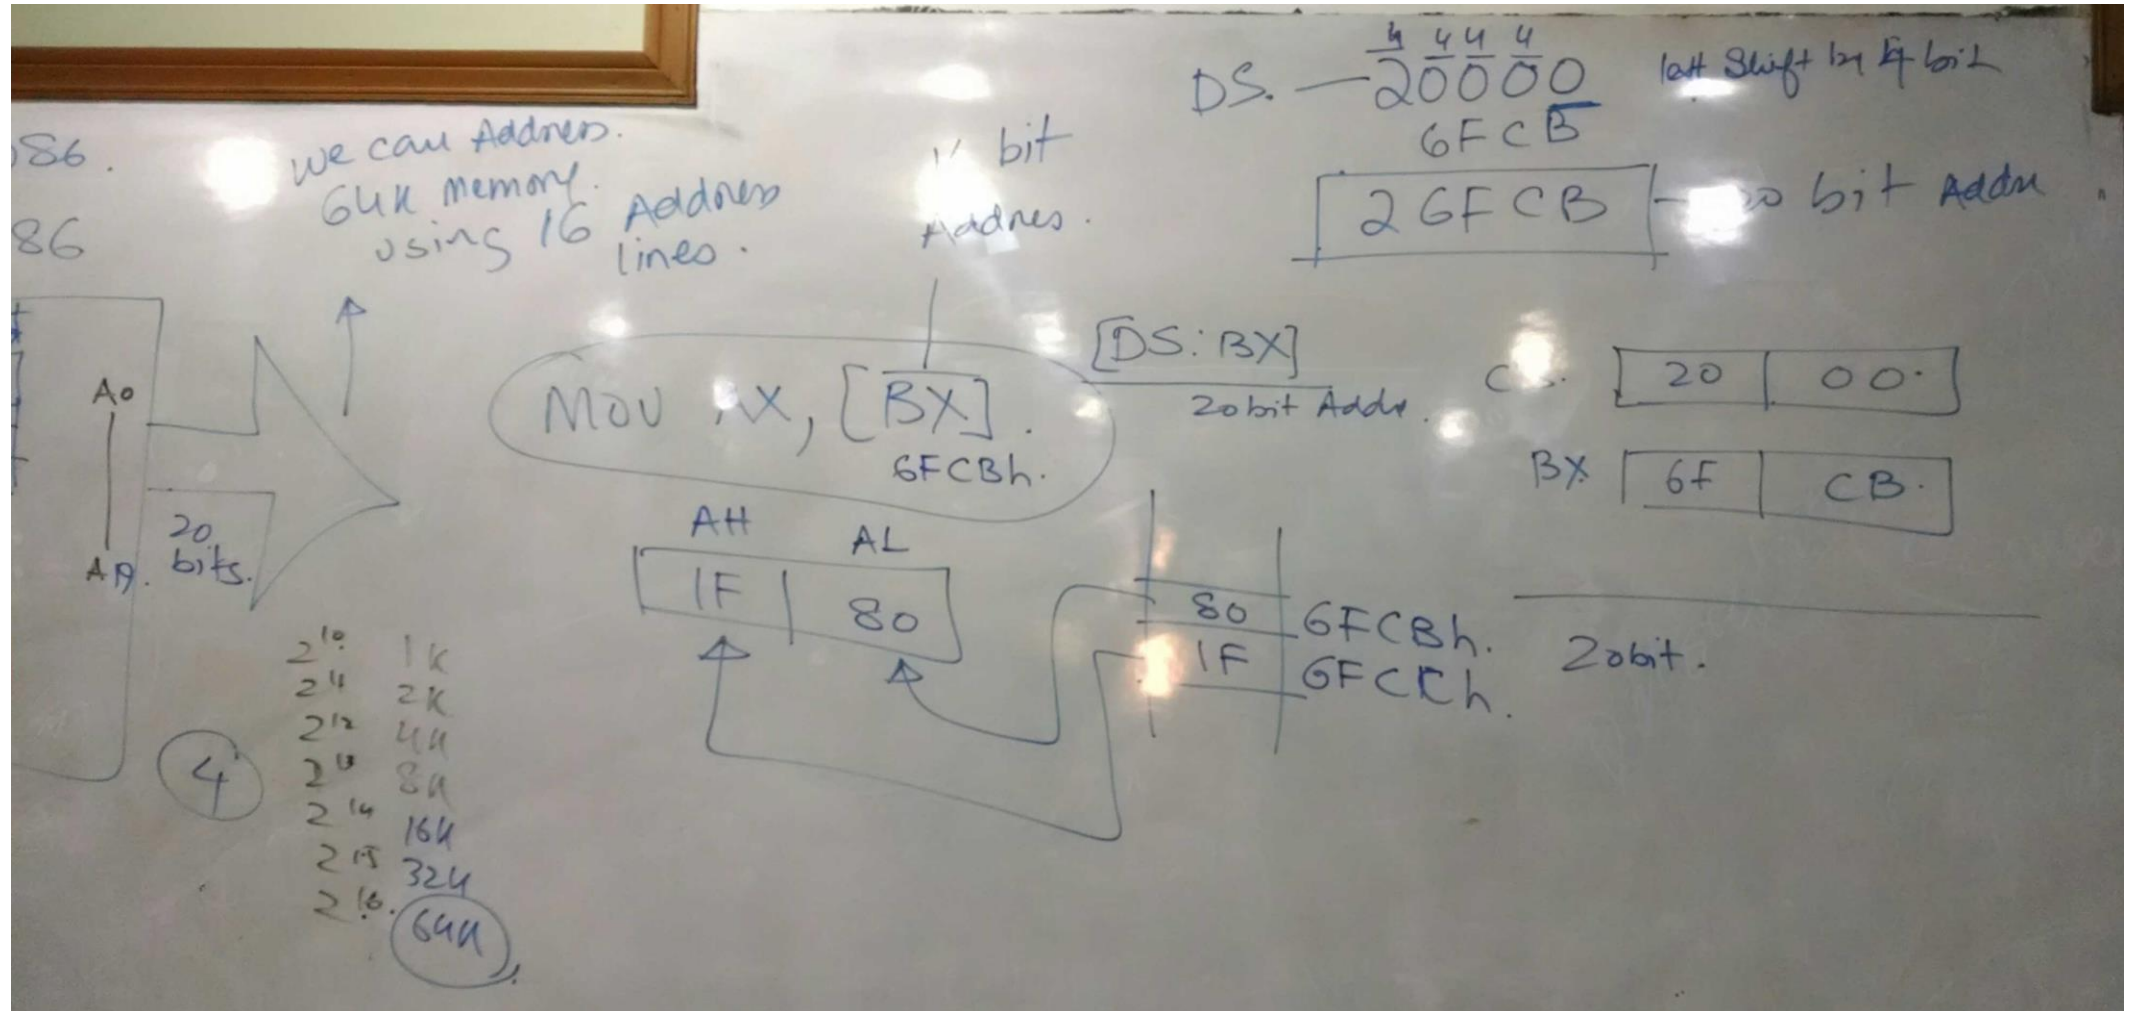 86.
86
we can Address.
64K memory.
using 16 Address
lines.
bit
Addres.
4 4 4 4
DS. — 20000
left Shift by 4 bit
6FCB
26FCB
bit Addre
A0
A19.
20
bits.
MOV AX, [BX].
6FCBh.
[DS:BX]
20bit Addr.
20 00.
BX 6F CB.
AH AL
1F 80
80 6FCBh.
1F 6FCCh.
20bit.
4
2^10 1K
2^11 2K
2^12 4K
2^13 8K
2^14 16K
2^15 32K
2^16. 64K